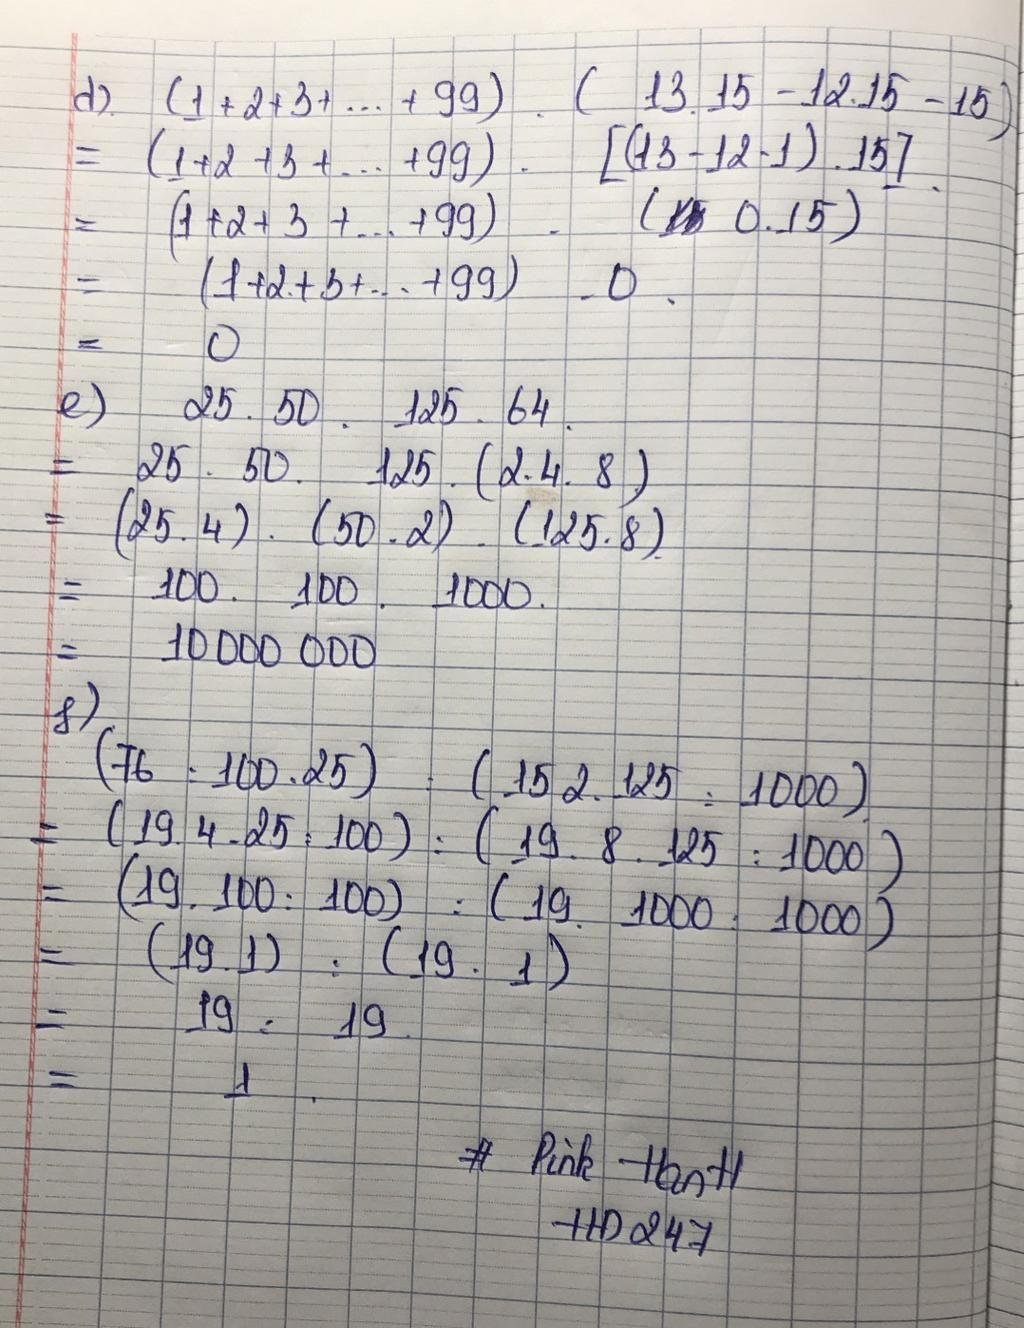 d) (1+2+3+...+99) . (13.15-12.15-15)
= (1+2+3+...+99) . [(13-12-1).15].
= (1+2+3+...+99) . (0.15)
= (1+2+3+...+99) .0.
= 0
e) 25.50.125.64.
= 25.50.125.(2.4.8)
= (25.4).(50.2).(125.8)
= 100.100.1000.
= 10000 000
f)
(76:100.25) : (152.125:1000)
= (19.4.25:100) : (19.8.125:1000)
= (19.100:100) : (19.1000:1000)
= (19.1) : (19.1)
= 19:19.
= 1.
# Pink
HD247